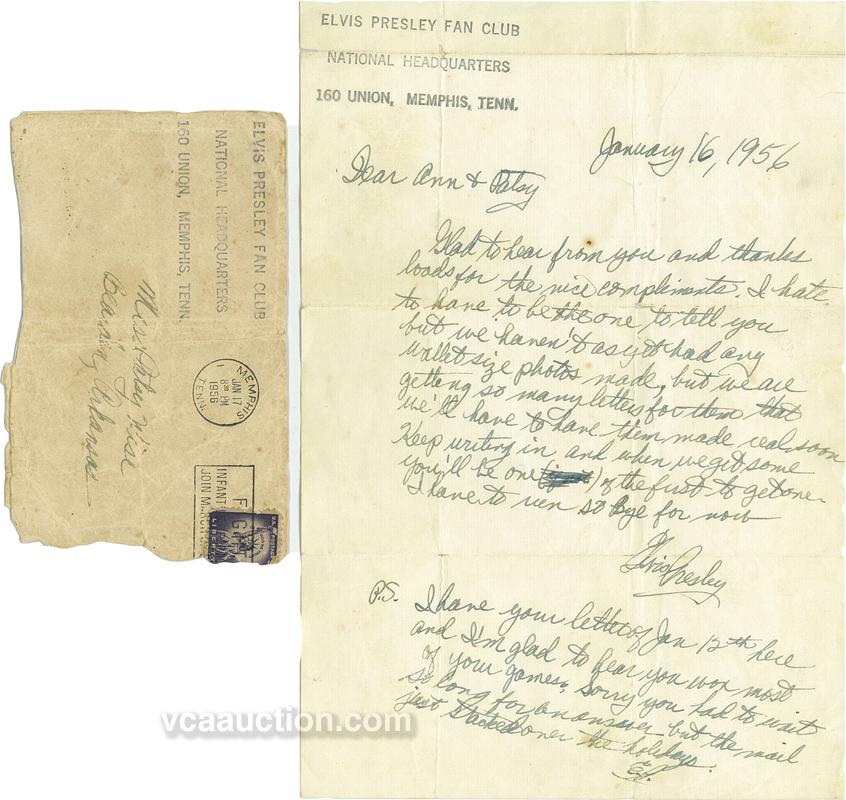 ELVIS PRESLEY FAN CLUB
NATIONAL HEADQUARTERS
160 UNION, MEMPHIS, TENN.
January 16, 1956
Dear Ann & Patsy
Glad to hear from you and thanks
loads for the nice compliments. I hate
to have to be the one to tell you
but we haven't as yet had any
wallet size photos made, but we are
getting so many letters for them that
we'll have to have them made real soon
Keep writing in, and when we get some
you'll be one of the first to get one.
I have to run so Bye for now
Elvis Presley
P.S. I have your letter of Jan 12th here
and I'm glad to hear you won most
of your games. Sorry you had to wait
so long for an answer but the mail
just stacked over the holidays.
E.P.
ELVIS PRESLEY FAN CLUB
NATIONAL HEADQUARTERS
160 UNION, MEMPHIS, TENN.
Miss Patsy
Bearden, Arkansas
MEMPHIS
JAN 17
8 30 PM
1956
TENN.
1
FIG
INFANT
JOIN MARCH O
U.S. POSTAGE
LIBERTY
vcaauction.com